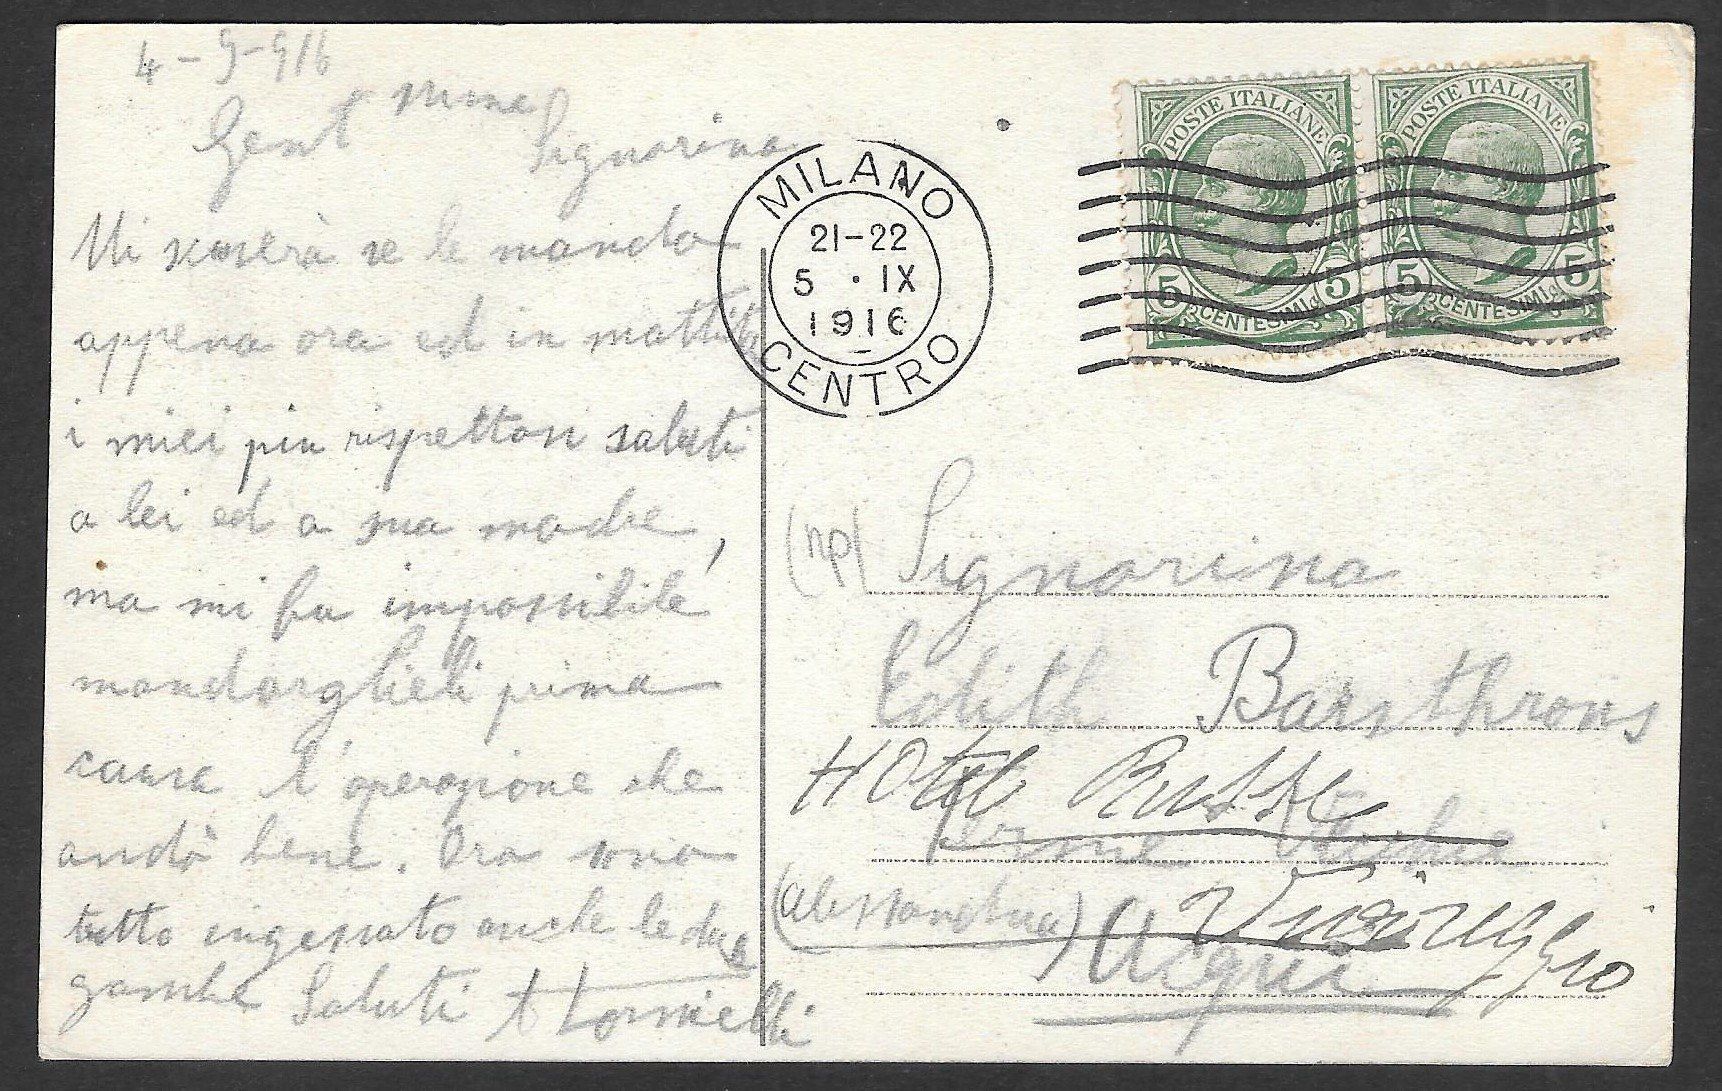 4-9-916
Gent mma
Signorina
Mi scuserà se le mando
appena ora ed in mattita
i miei piu rispettosi saluti
a lei ed a sua madre,
ma mi fu impossibile
mandarglieli prima
causa l'operazione che
andò bene. Ora sono
tutto ingessato anche le due
gambe Saluti A Tornielli
MILANO
21-22
5 · IX
1916
CENTRO
POSTE ITALIANE
5 CENTESIMI 5
POSTE ITALIANE
5 CENTESIMI 5
(np) Signorina
Edith
Hotel Russe
Terme
(Alessandria) Acqui
Viareggio